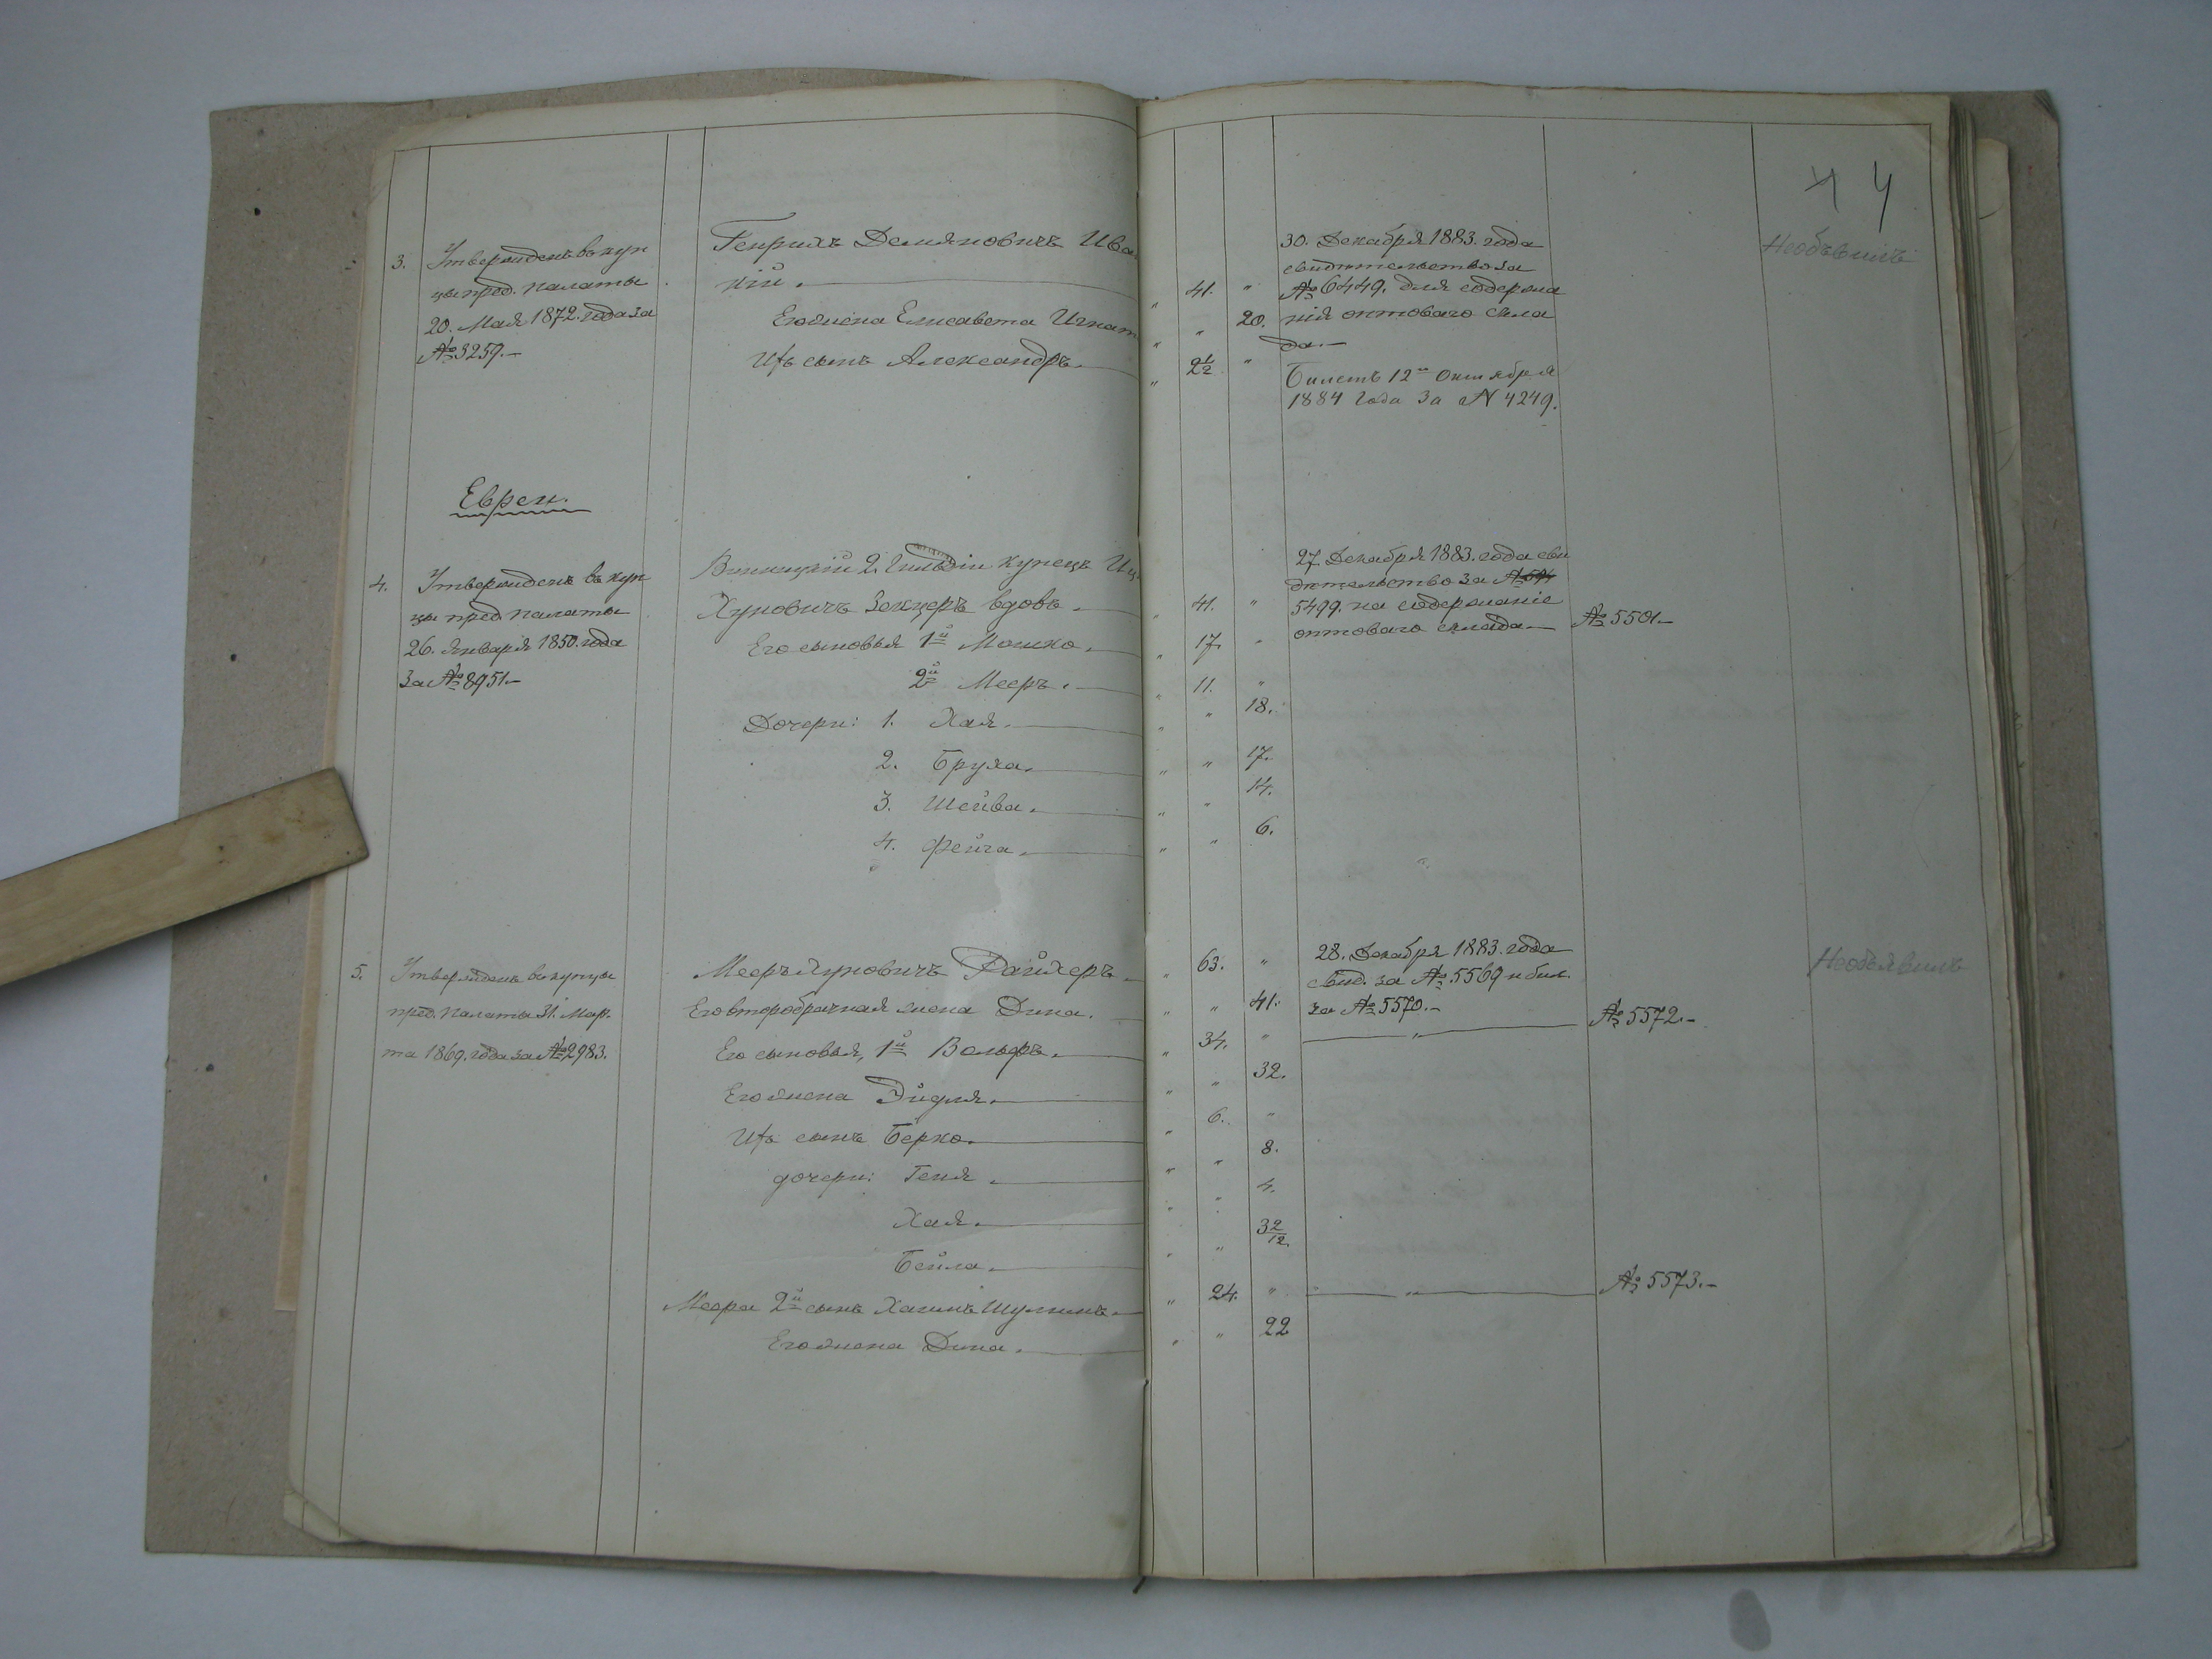 4 4
3. Утвержденъ въ куп
цы пред. палаты
20. Мая 1872. года за
№ 3259.—
Генрихъ Демяновичъ Ива
кій.
" 41. "
Его жена Елисавета Игнат
" " 20.
Ихъ сынъ Александръ.
" 2 1/2 "
30. Декабря 1883. года
свидѣтельство за
№ 6449. для содержа
нія оптоваго скла
да.—
Билетъ 12го октября
1884 года за N 4249.
Необъявилъ
Евреи.
4. Утвержденъ въ куп
цы пред. палаты
26. Января 1850. года
за № 8951.—
Винницкій 2. Гильдіи купецъ Иц
Хуновичъ Зекцеръ вдовъ.
" 41. "
Его сыновья 1й Мошко.
" 17. "
2й Мееръ.
" 11. "
Дочери: 1. Хая.
" " 18.
2. Бруха.
" " 17.
3. Шейва.
" " 14.
4. Фейга.
" " 6.
27. Декабря 1883. года сви
дѣтельство за №
5499. на содержаніе
оптоваго склада.—
№ 5501.—
5. Утвержденъ въ купцы
пред. Палаты 31. Мар.
та 1869. года за № 2983.
Мееръ Хуновичъ Райхеръ
" 63. "
Его второбрачная жена Дина.
" " 41.
Его сыновья, 1й Вольфъ.
" 34. "
Его жена Эйдля.
" " 32.
Ихъ сынъ Берко.
" 6. "
дочери: Геня
" " 8.
Хая.
" " 4.
Бейла.
" " 3 2/12.
Меера 2й сынъ Хаимъ Шулимъ.
" 24. "
Его жена Дина.
" " 22
28. Декабря 1883. года
свид. за № 5569 и бил.
за № 5570.—
"
№ 5572.—
"
№ 5573.—
Необъявилъ